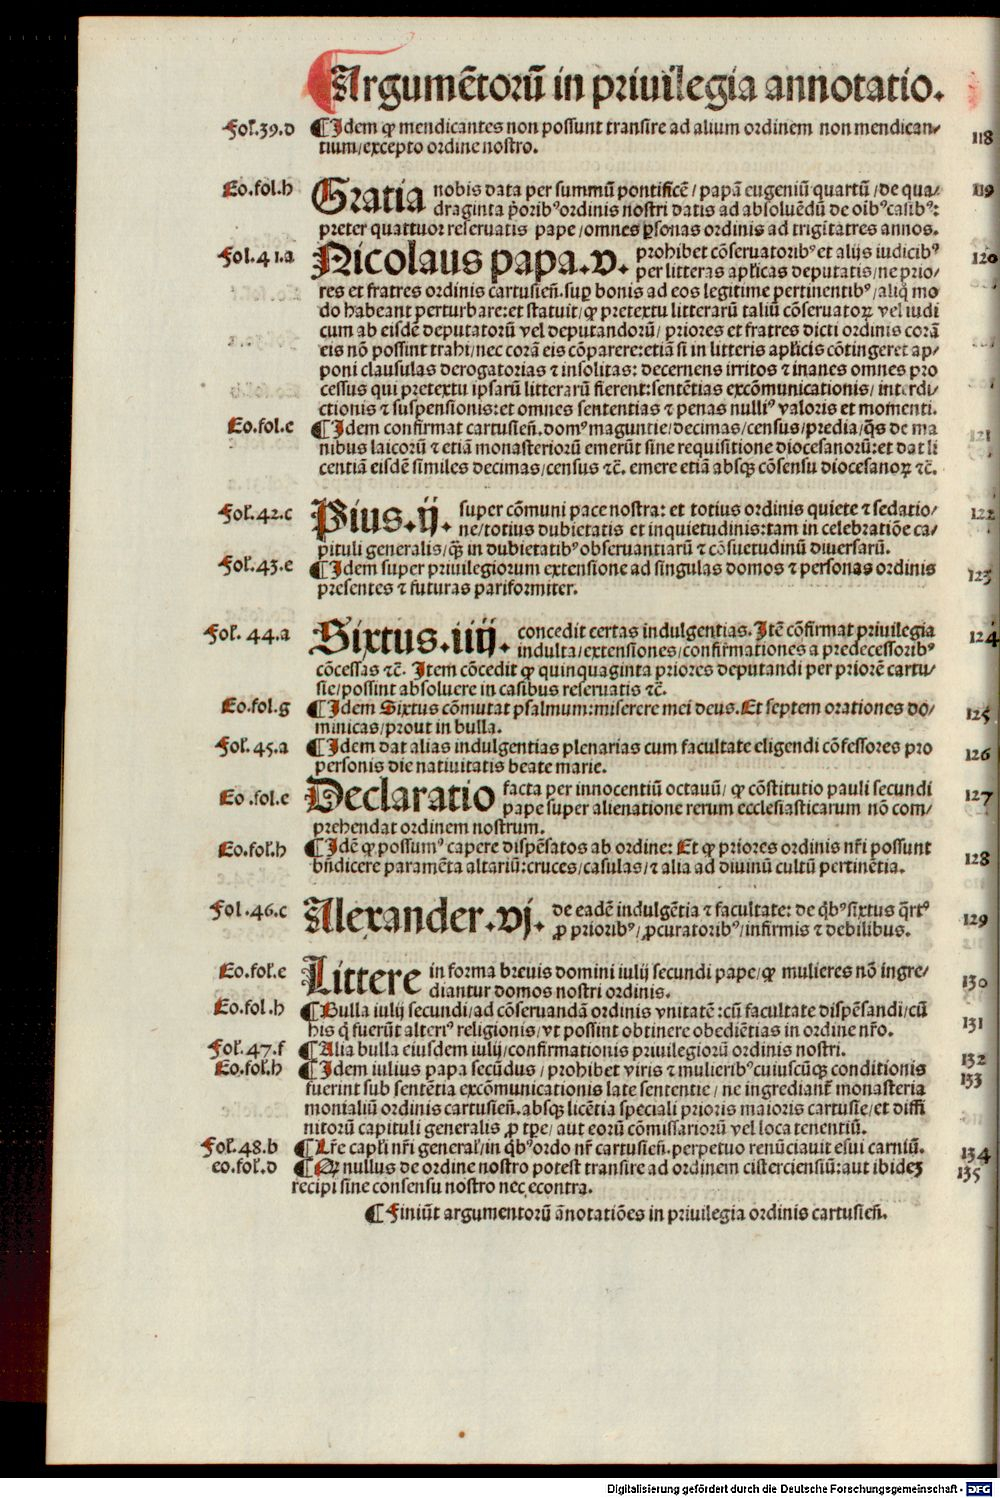 Argumẽtorũ in priuilegia annotatio.
Fol.39.d ¶Idem ꝙ mendicantes non possunt transire ad alium ordinem non mendican/ 118
tium/excepto ordine nostro.
Eo.fol.h Gratia nobis data per summũ pontificẽ/papã eugeniũ quartũ/de qua/ 119
draginta p̄orib⁹ ordinis nostri datis ad absoluẽdũ de oĩb⁹ casib⁹:
preter quattuor reseruatis pape/omnes ꝑsonas ordinis ad trigĩtatres annos.
Fol.41.a Nicolaus papa.v. prohibet cõseruatorib⁹ et alijs iudicib⁹ 120
per litteras apƚicas deputatis/ne prio/
res et fratres ordinis cartusieñ.suꝑ bonis ad eos legitime pertinentib⁹/aliq̃ mo
do habeant perturbare:et statuit/ꝙ pretextu litterarũ taliũ cõseruatoꝝ vel iudi
cum ab eisdẽ deputatorũ vel deputandorũ/priores et fratres dicti ordinis corã
eis nõ possint trahi/nec corã eis cõparere:etiã si in litteris apƚicis cõtingeret ap/
poni clausulas derogatorias ⁊ insolitas: decernens irritos ⁊ inanes omnes pro
cessus qui pretextu ipsarũ litterarũ fierent:sentẽtias excõmunicationis/interdi/
ctionis ⁊ suspensionis:et omnes sententias ⁊ penas nulli⁹ valoris et momenti.
Eo.fol.e ¶Idem confirmat cartusieñ.dom⁹ maguntie/decimas/census/predia/q̃s de ma 121
nibus laicorũ ⁊ etiã monasteriorũ emerũt sine requisitione diocesanorũ:et dat li
centiã eisdẽ similes decimas/census ⁊c̃. emere etiã absqꝫ cõsensu diocesanoꝝ ⁊c̃.
Fol.42.c Pius.ij. super cõmuni pace nostra: et totius ordinis quiete ⁊ sedatio/ 122
ne/totius dubietatis et inquietudinis:tam in celebratiõe ca/
pituli generalis/q̃ꝫ in dubietatib⁹ obseruantiarũ ⁊ cõsuetudinũ diuersarũ.
Fol.43.e ¶Idem super priuilegiorum extensione ad singulas domos ⁊ personas ordinis 123
presentes ⁊ futuras pariformiter.
Fol. 44.a Sixtus.iiij. concedit certas indulgentias. Itẽ cõfirmat priuilegia 124
indulta/extensiones/confirmationes a predecessorib⁹
cõcessas ⁊c̃. Item cõcedit ꝙ quinquaginta priores deputandi per priorẽ cartu/
sie/possint absoluere in casibus reseruatis ⁊c̃.
Eo.fol.g ¶Idem Sixtus cõmutat psalmum:miserere mei deus.Et septem orationes do/ 125
minicas/prout in bulla.
Fol.45.a ¶Idem dat alias indulgentias plenarias cum facultate eligendi cõfessores pro 126
personis die natiuitatis beate marie.
Eo.fol.e Declaratio facta per innocentiũ octauũ/ ꝙ cõstitutio pauli secundi 127
pape super alienatione rerum ecclesiasticarum nõ com/
prehendat ordinem nostrum.
Eo.fol.h ¶Idẽ ꝙ possum⁹ capere dispẽsatos ab ordine: Et ꝙ priores ordinis nr̃i possunt 128
bñdicere paramẽta altariũ:cruces/casulas/⁊ alia ad diuinũ cultũ pertinẽtia.
Fol.46.c Alexander.vj. de eadẽ indulgẽtia ⁊ facultate: de q̃b⁹ sixtus q̃rt⁹ 129
ꝓ priorib⁹/ꝓcuratorib⁹/infirmis ⁊ debilibus.
Eo.fol.e Littere in forma breuis domini iulij secundi pape/ꝙ mulieres nõ ingre/ 130
diantur domos nostri ordinis.
Eo.fol.h ¶Bulla iulij secundi/ad cõseruandã ordinis vnitatẽ:cũ facultate dispẽsandi/cũ 131
his q̃ fuerũt alteri⁹ religionis/vt possint obtinere obediẽtias in ordine nr̃o.
Fol.47.f ¶Alia bulla eiusdem iulij/confirmationis priuilegiorũ ordinis nostri. 132
Eo.fol.h ¶Idem iulius papa secũdus/prohibet viris ⁊ mulierib⁹ cuiuscũqꝫ conditionis 133
fuerint sub sentẽtia excõmunicationis late sententie/ ne ingrediant̃ monasteria
monialiũ ordinis cartusieñ.absqꝫ licẽtia speciali prioris maioris cartusie/et diffi
nitorũ capituli generalis ꝓ tp̃e/aut eorũ cõmissariorũ vel loca tenentiũ.
Fol.48.b ¶Lr̃e capƚi nr̃i general̃/in q̃b⁹ ordo nr̃ cartusieñ.perpetuo renũciauit esui carniũ. 134
eo.fol.d ¶Q̃ nullus de ordine nostro potest transire ad ordinem cisterciensiũ:aut ibideꝫ 135
recipi sine consensu nostro nec econtra.
¶Finiũt argumentorũ ãnotatiões in priuilegia ordinis cartusieñ.
Digitalisierung gefördert durch die Deutsche Forschungsgemeinschaft - DFG